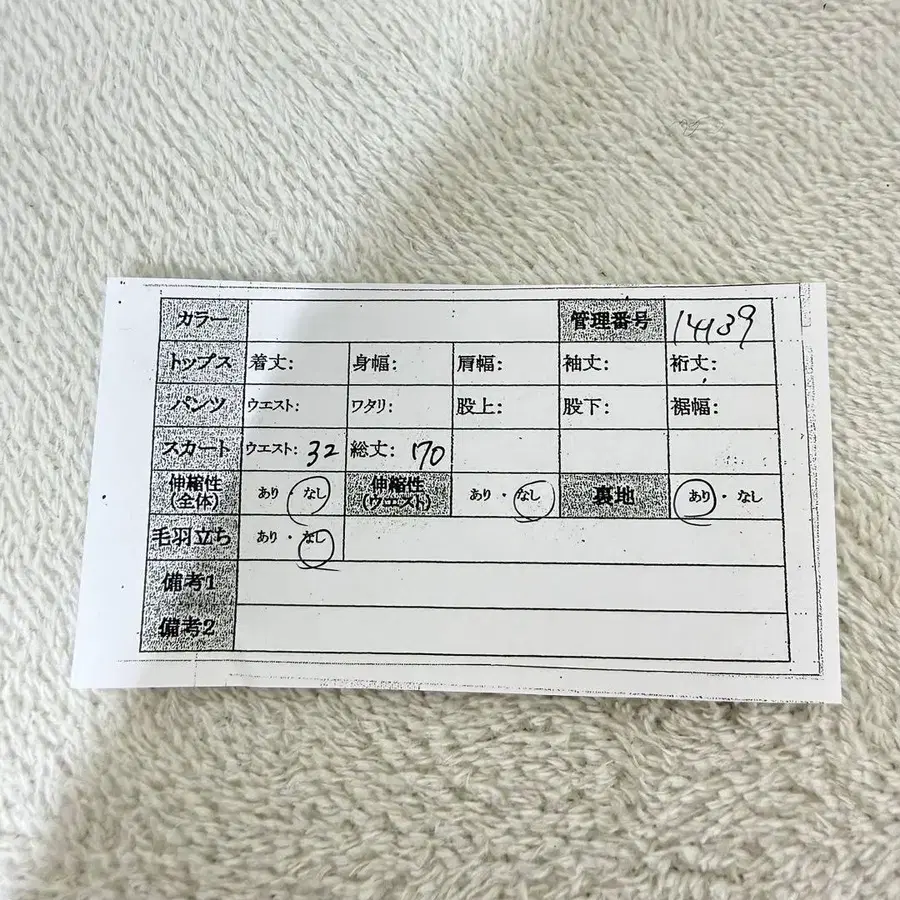 カラー 管理番号 14139
トップス 着丈: 身幅: 肩幅: 袖丈: 裄丈:
パンツ ウエスト: ワタリ: 股上: 股下: 裾幅:
スカート ウエスト: 32 総丈: 170
伸縮性(全体) あり・なし 伸縮性(ウエスト) あり・なし 裏地 あり・なし
毛羽立ち あり・なし
備考1
備考2